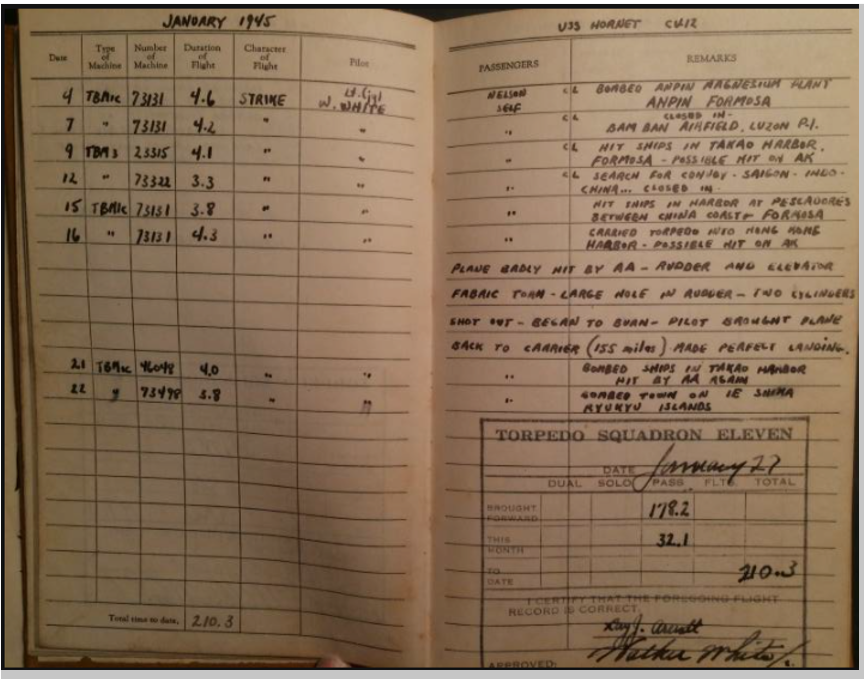 JANUARY 1945
Date Type of Machine Number of Machine Duration of Flight Character of Flight Pilot
4 TBM1c 73131 4.6 STRIKE Lt.(jg) W. WHITE
7 " 73131 4.2 " "
9 TBM3 23315 4.1 " "
12 " 73322 3.3 " "
15 TBM1c 73131 3.8 " "
16 " 73131 4.3 " "
21 TBM1c 46048 4.0 " "
22 " 73498 3.8 " "
Total time to date, 210.3
USS HORNET CV12
PASSENGERS REMARKS
NELSON CL BOMBED ANPIN MAGNESIUM PLANT
SELF ANPIN FORMOSA
CL CLOSED IN -
" BAM BAN AIRFIELD, LUZON P.I.
" CL HIT SHIPS IN TAKAO HARBOR,
FORMOSA - POSSIBLE HIT ON AK
CL SEARCH FOR CONVOY - SAIGON - INDO-
" CHINA... CLOSED IN -
" HIT SHIPS IN HARBOR AT PESCADORES
BETWEEN CHINA COAST & FORMOSA
" CARRIED TORPEDO INTO HONG KONG
HARBOR - POSSIBLE HIT ON AK
PLANE BADLY HIT BY AA - RUDDER AND ELEVATOR
FABRIC TORN - LARGE HOLE IN RUDDER - TWO CYLINDERS
SHOT OUT - BEGAN TO BURN - PILOT BROUGHT PLANE
BACK TO CARRIER (155 miles) MADE PERFECT LANDING.
" BOMBED SHIPS IN TAKAO HARBOR
HIT BY AA AGAIN
" BOMBED TOWN ON IE SHIMA
RYUKYU ISLANDS
TORPEDO SQUADRON ELEVEN
DATE January 27
DUAL SOLO PASS. FLTS. TOTAL
BROUGHT FORWARD 178.2
THIS MONTH 32.1
TO DATE 210.3
I CERTIFY THAT THE FOREGOING FLIGHT
RECORD IS CORRECT.
Ray J.
APPROVED: Walker White